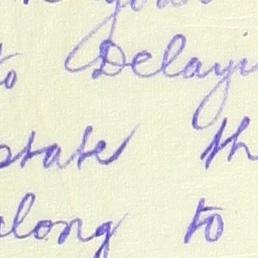 to Delayi
state th
along to